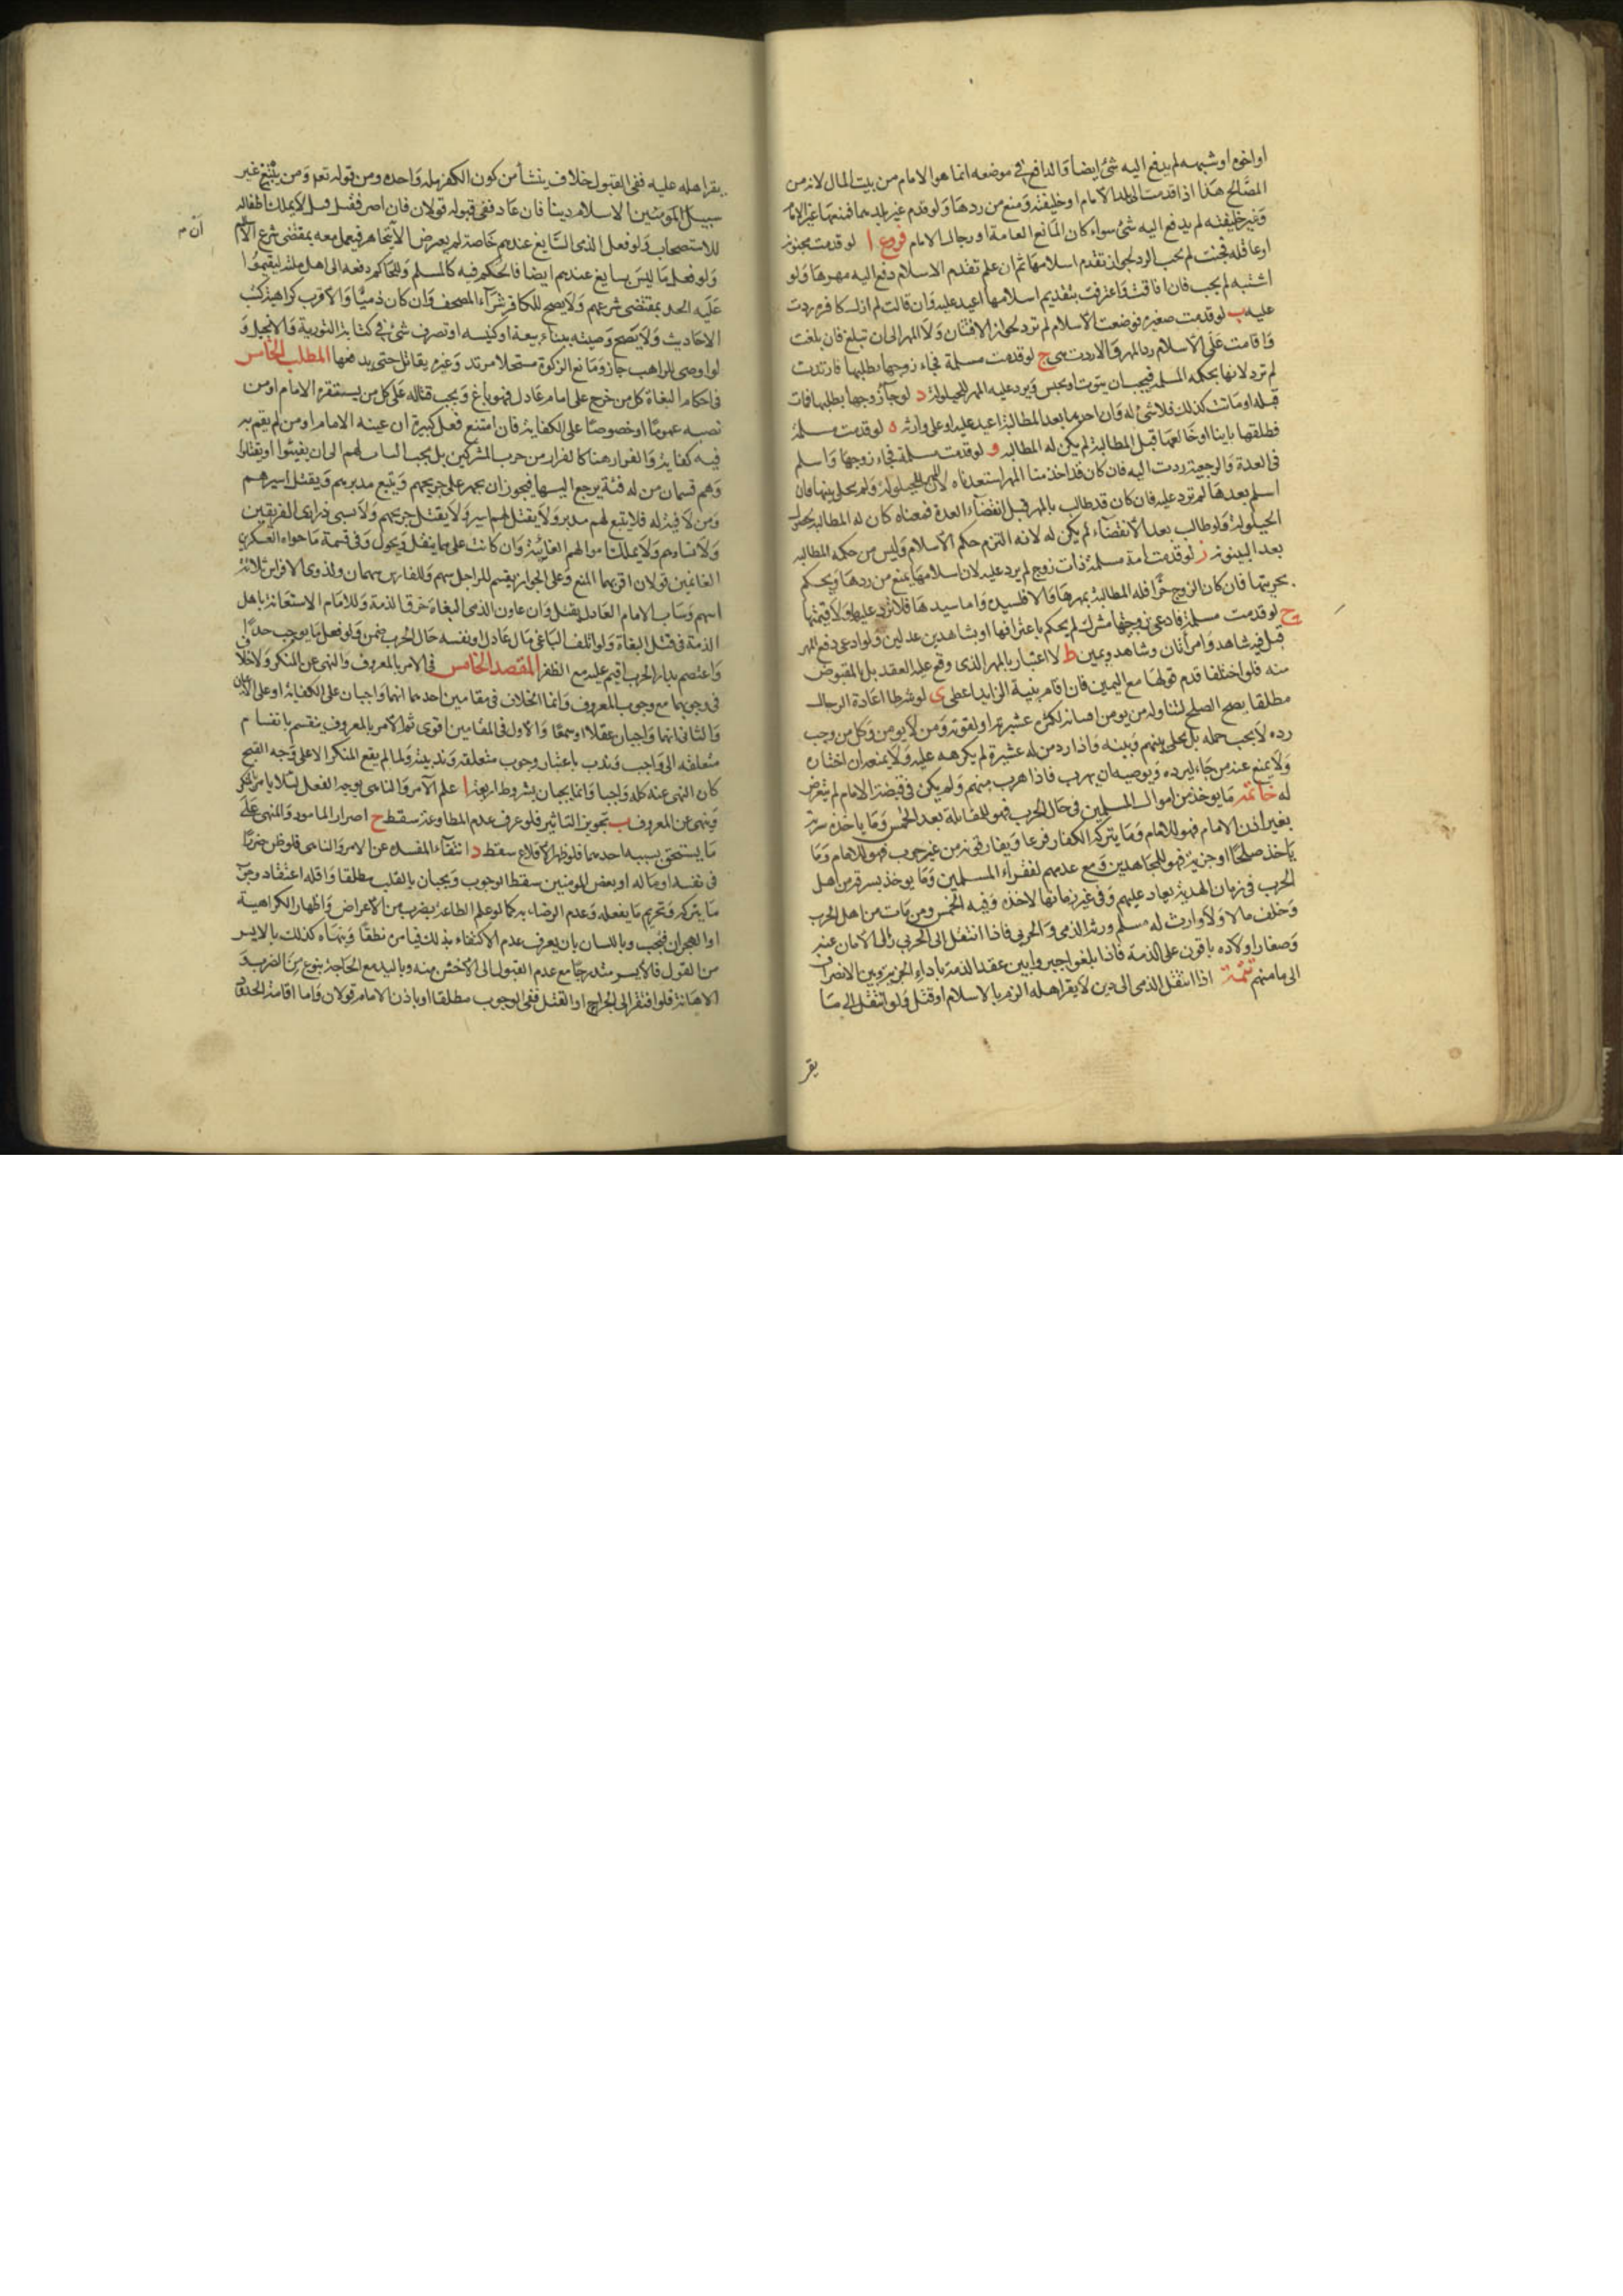 او اخوه او شبهه لم يدفع اليه شئ ايضا والدافع في موضعه انما هو الامام من بيت المال لانه من
المصالح هذا اذا قدمت الى بلد الامام او خليفته ومنع من ردها ولو قدم غير بلدهما فمنعها غير الامام
وغير خليفته لم يدفع اليه شئ سواء كان المانع العامة او رجال الامام فروع ا لو قدمت مجنونة
او عاقلة فجنت لم يجب الرد لجواز تقدم اسلامها ثم ان علم تقدم الاسلام دفع اليه مهرها ولو
اشتبه لم يجب فان افاقت واعترفت بتقديم اسلامها اعيد عليه وان قالت لم ازل كافرة ردت
عليه ب لو قدمت صغيرة فوضعت الاسلام لم ترد لجواز الافتتان ولا المهر الى ان تبلغ فان بلغت
واقامت على الاسلام رد المهر والا ردت هي ج لو قدمت مسلمة فجاء زوجها يطلبها فارتدت
لم ترد لانها بحكم المسلمة فيجب ان تتوب او تحبس ويرد عليه المهر للحيلولة د لو جاء زوجها يطلبها فمات
قبله او ماتت كذلك فلا شئ له وان احدهما بعد المطالبة اعيد عليه او على وارثه ه لو قدمت مسلمة
فطلقها باينا او خالعها قبل المطالبة لم يكن له المطالبة و لو قدمت مسلمة فجاء زوجها واسلم
في العدة والرجعية ردت اليه فان كان قد اخذ منا المهر استعدناه لان المهر للحيلولة ولم يحل بينهما فان
اسلم بعدها لم ترد عليه فان كان قد طالب بالمهر قبل انقضاء العدة فمعناه كان له المطالبة لحصول
الحيلولة ولو طالب بعد الانقضاء لم يكن له لانه التزم حكم الاسلام وليس من حكمه المطالبة
بعد البينونة ز لو قدمت امة مسلمة ذات زوج لم يرد عليه لان اسلامها يمنع من ردها ويحكم
بحريتها فان كان الزوج حرا فله المطالبة بمهرها والا فلسيده واما سيدها فلا ترد عليه ولا قيمتها
ح لو قدمت مسلمة فادعى زوجيتها مشرك لم يحكم باعترافها او بشاهدين عدلين ولو ادعى دفع المهر
قبل فيه شاهد وامرأتان وشاهد ويمين ط لا اعتبار بالمهر الذي وقع عليه العقد بل بالمقبوض
منه فلو اختلفا قدم قولها مع اليمين فان اقام بنية الزايد اعطى ى لو شرطا اعادة الرجال
مطلقا يصح الصلح لتناوله من يومن افسانه لكثرة عشيرته او لقوته ومن لا يومن وكل من وجب
رده لا يجب حمله بل يخلى بينهم وبينه واذا رد من له عشيرة لم يكرهه عليه ولا يمنعه ان اختاره
ولا يمنع عنه من جاء ليرده ويوصيه ان يهرب فاذا هرب منهم ولم يكن في قبضة الامام لم يتعرض
له خاتمة ما يوخذ من اموال المسلمين في حال الحرب فهو للمقاتلة بعد الخمس وما ياخذه سرية
بغير اذن الامام فهو للامام وما يتركه الكفار فزعا ويفارقونه من غير حرب فهو للامام وما
ياخذ صلحا او جزية فهو للمجاهدين ومع عدمهم لفقراء المسلمين وما يوخذ بسرقة من اهل
الحرب في زمان الهدنة يعاد عليهم وفي غير زمانها لاخذه وفيه الخمس ومن مات من اهل الحرب
وخلف مالا ولا وارث له مسلم ورثه الذمي والحربي فاذا انتقل الى الحربي زال الامان عنه
وصغار اولاده باقون على الذمة فاذا بلغوا خيروا بين عقد الذمة باداء الجزية وبين الانصراف
الى مامنهم تتمة اذا انتقل الذمي الى دين لا يقر اهله الزم بالاسلام او قتل ولو انتقل الى ما
يقر
يقر اهله عليه ففي القبول خلاف ينشأ من كون الكفر ملة واحدة ومن قوله تعم ومن يبتغ غير
سبيل المؤمنين الاسلام دينا فان عاد ففي قبوله قولان فان اصر فقتل قبل لا يملك اطفاله
للاستصحاب ولو فعل الذي السايغ عندهم خاصة لم يعترض الا يتجاهر فيعمل معه بمقتضى شرع الاسلام
ان م
ولو فعل ما ليس بسايغ عندهم ايضا فالحكم فيه كالمسلم وللحاكم دفعه الى اهل ملته ليقيموا
عليه الحد بمقتضى شرعهم ولا يصح للكافر شراء المصحف وان كان ذميا والاقرب كراهية كتب
الاحاديث ولا يصح وصيته ببناء بيعة او كنيسة او تصرف شئ في كتابة التورية والانجيل و
لو اوصى للراهب جاز ومانع الزكوة مستحلا مرتد وغيره يقاتل حتى يدفعها المطلب الخامس
في احكام البغاة كل من خرج على امام عادل فهو باغ ويجب قتاله على كل من يستنفره الامام او من
نصبه عموما او خصوصا على الكفاية فان امتنع فعل كبيرة ان عينه الامام او من لم يقم به
فيه كفاية والفرار هنا كالفرار من حرب المشركين بل يجب الثبات لهم الى ان يفيئوا او يقتلوا
وهم قسمان من له فئة يرجع اليها فيجوز ان يجهز على جريحهم ويتبع مدبرهم ويقتل اسيرهم
ومن لا فئة له فلا يتبع لهم مدبر ولا يقتل لهم اسير ولا يقتل جريحهم ولا تسبى ذراري الفريقين
ولا نساؤهم ولا يملك اموالهم الغائبة وان كانت على ما ينقل ويحول وفي قسمة ما حواه العسكر بين
الغانمين قولان اقربهما المنع وعلى الجواز يقسم للراجل سهم وللفارس سهمان ولذوي الافراس ثلاثة
اسهم وساب الامام العادل يقتل وان عاون الذمي البغاة خرق الذمة وللامام الاستعانة باهل
الذمة في قتل البغاة ولو اتلف الباغي مال عادل او نفسه حال الحرب ضمن ولو فعل ما يوجب حدا
واعتصم بدار الحرب اقيم عليه مع الظفر المقصد الخامس في الامر بالمعروف والنهي عن المنكر ولا خلاف في
في وجوبهما مع وجوب المعروف وانما الخلاف في مقامين احدهما انهما واجبان على الكفاية او على الاعيان
والثاني انهما واجبان عقلا او سمعا والاول في المقامين اقوى ثم الامر بالمعروف ينقسم بانقسام
متعلقه الى واجب وندب باعتبار وجوب متعلقه وندبيته ولما لم يقع المنكر الا على وجه القبح
كان النهي عنه كله واجبا وانما يجبان بشروط اربعة ا علم الآمر والناهي بوجه الفعل لئلا يامر بمنكر
وينهى عن المعروف ب تجويز التاثير فلو عرف عدم المطاوعة سقط ج اصرار المامور والمنهي على
ما يستحق بسببه احدهما فلو ظهر الاقلاع سقط د انتفاء المفسدة عن الامر والناهي فلو ظن ضررا
في نفسه او ماله او بعض المومنين سقط الوجوب ويجبان بالقلب مطلقا واقله اعتقاد وجوب
ما يتركه وتحريم ما يفعله وعدم الرضاء به كما لو علم الطاعة بضرب من الاعراض واظهار الكراهية
او الهجران فيجب وباللسان بان يعرف عدم الاكتفاء بذلك فيامر نطقا وينهاه كذلك بالايسر
من القول فالايسر متدرجا مع عدم القبول الى الاخشن منه وباليد مع الحاجة بنوع من الضرب و
الاهانة فلو افتقر الى الجراح او القتل ففي الوجوب مطلقا او باذن الامام قولان واما اقامة الحدود